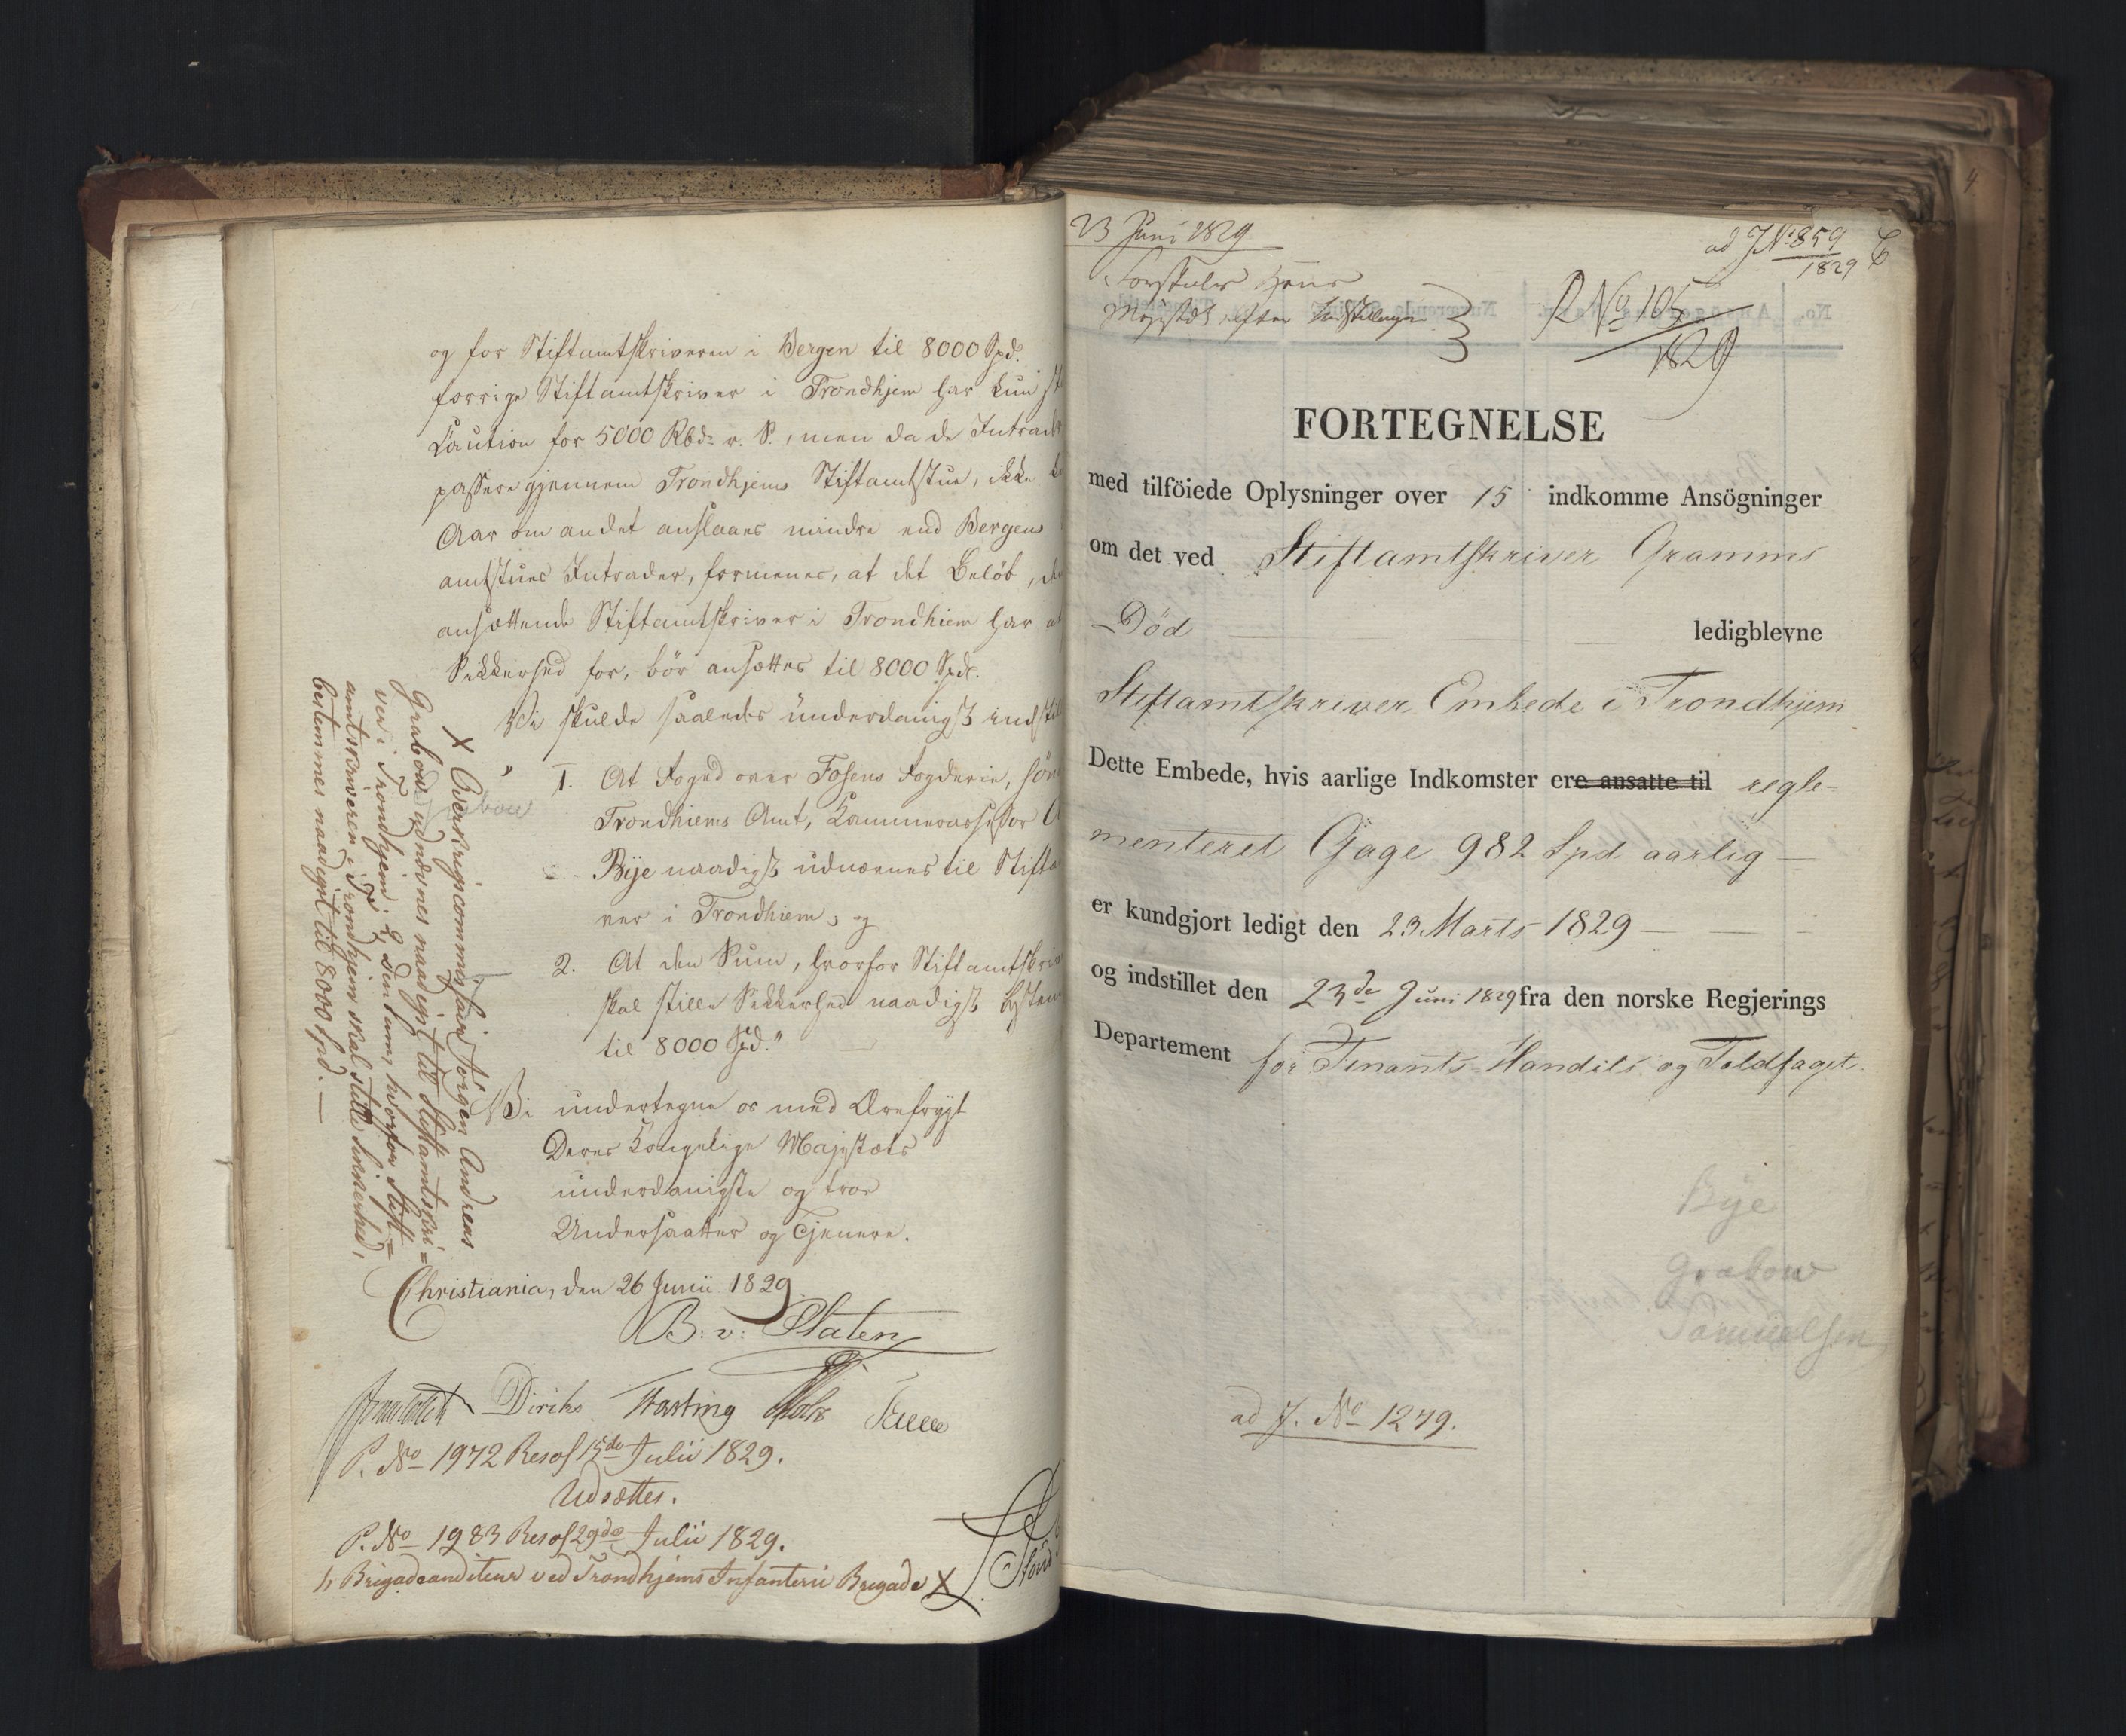 og for Stiftamtskriveren i Bergen til 8000 Spd.
forrige Stiftamtskriver i Trondhjem har kun
Caution for 5000 Rbd. r. S., men da de Intrader
passere gjennem Trondhjems Stiftamtstue, ikke
Aar om andet anslaaes mindre end Bergens
amtstues Intrader, formenes, at det Beløb,
ansættende Stiftamtskriver i Trondhiem har
Sikkerhed for, bör ansættes til 8000 Spd.
Vi skulde saaledes underdanigst
" 1. At Foged over Fosens Fogderie,
Trondhiems Amt, Kammerassessor
Bÿe naadigst udnævnes til
ver i Trondhiem, og
2. At den Sum, hvorfor
skal stille Sikkerhed naadigst
til 8000 Spd."
Vi undertegne os med Ærefrygt
Deres Kongelige Majestæts
underdanigste og troe
Undersaatter og Tjenere.
Christiania, den 26 Junii 1829.
B: v: Platen
Diriks Fasting
P. No 1972 Resol 15de Julii 1829.
Udsættes.
P. No 1983 Resol 29de Julii 1829.
Brigadeauditeur ved Trondhjems Infanterie Brigade X
X Overkrigscommissair Jörgen Andreas
Grabow udnævnes naadigst til Stiftamtskri=
ver i Trondhjem; og den Sum, hvorfor Stift=
amtskriveren i Trondhjem skal stille Sikkerhed,
bestemmes naadigst til 8000 Spd. —
23 Juni 1829
Forestilles Hans
Majestæt efter Indstillingen
ad J No 859
1829
R No 105
1829
FORTEGNELSE
med tilföiede Oplysninger over 15 indkomme Ansögninger
om det ved Stiftamtskriver Gramms
Död ledigblevne
Stiftamtskriver Embede i Trondhjem
Dette Embede, hvis aarlige Indkomster ere ansatte til regle-
menteret Gage 982 Spd aarlig —
er kundgjort ledigt den 23 Marts 1829 —
og indstillet den 23de Juni 1829 fra den norske Regjerings
Departement for Finants-Handels og Toldfaget.
Bÿe
Grabow
Samuelsen
ad J. No 1279.